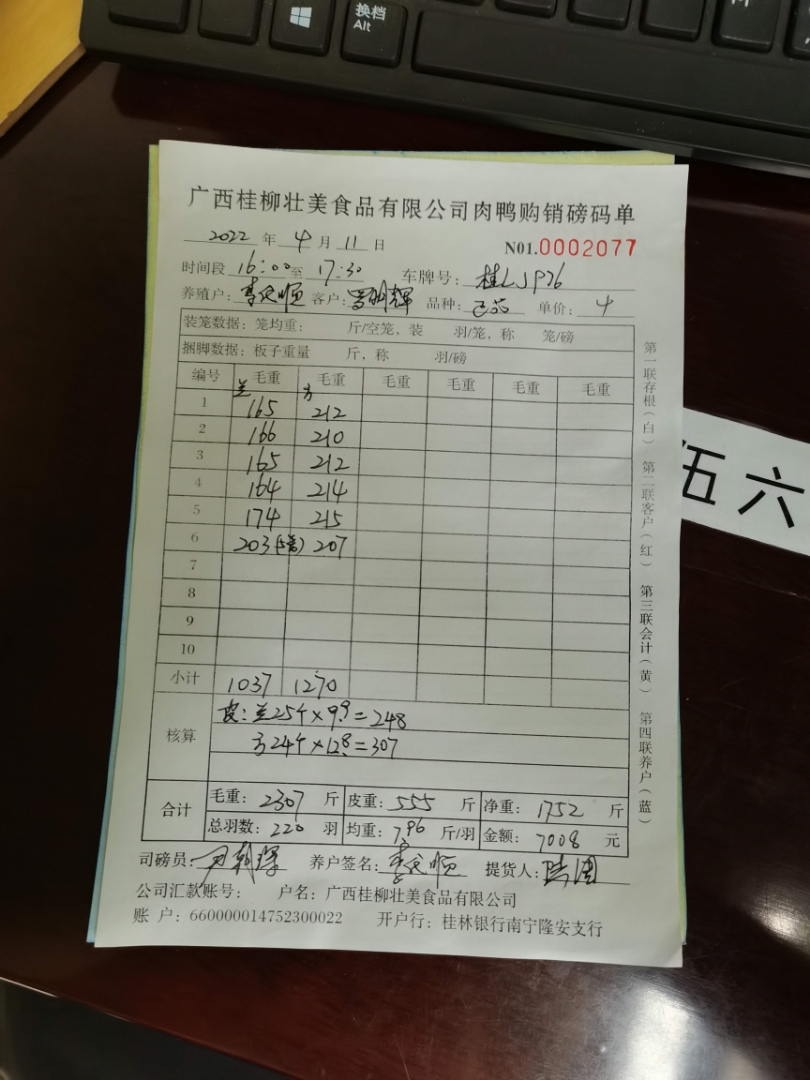 换档
Alt
广西桂柳壮美食品有限公司肉鸭购销磅码单
2022 年 4 月 11 日 N01.0002077
时间段 16:00 至 17:30 车牌号: 桂LJP76
养殖户: 李 顺 客户: 罗明辉 品种: 单价: 4
装笼数据: 笼均重: 斤/空笼, 装 羽/笼, 称 笼/磅
捆脚数据: 板子重量 斤, 称 羽/磅
编号 毛重 毛重 毛重 毛重 毛重 毛重
兰 方
1 165 212
2 166 210
3 165 212
4 164 214
5 174 215
6 203 207
7
8
9
10
小计 1037 1270
核算 皮: 兰25个×9.9=248
方24个×12.8=307
合计 毛重: 2307 斤 皮重: 555 斤 净重: 1752 斤
总羽数: 220 羽 均重: 7.96 斤/羽 金额: 7008 元
司磅员: 养户签名: 李 顺 提货人:
公司汇款账号: 户名: 广西桂柳壮美食品有限公司
账 户: 660000014752300022 开户行: 桂林银行南宁隆安支行
第一联存根(白) 第二联客户(红) 第三联会计(黄) 第四联养户(蓝)
伍六